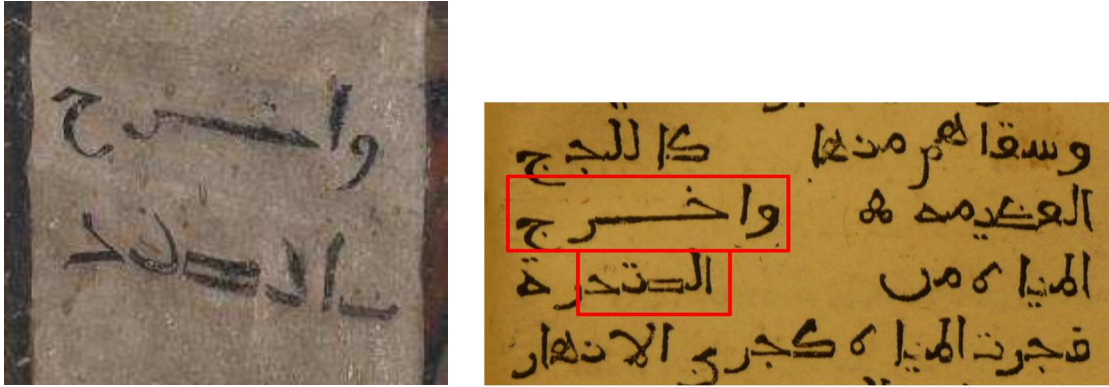 واخرج
وسقاهم منها كاللجج
العظيمه واخرج
المياه من الصخرة
فجرت المياه كجري الانهار